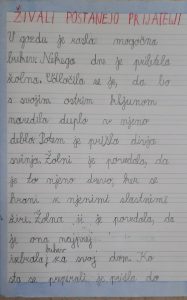 ŽIVALI POSTANEJO PRIJATELJI
V gozdu je rasla mogočna
bukev. Nekega dne je priletela
žolna. Odločila se je, da bo
s svojim ostrim kljunom
naredila duplo v njeno
deblo. Potem je prišla divja
svinja. Žolni je povedala, da
je to njeno drevo, ker se
hrani z njenimi slastnimi
žiri. Žolna ji je povedala, da
je ona najprej
bukev
izbrala za svoj dom. Ko
sta se prepirali je prišlo do